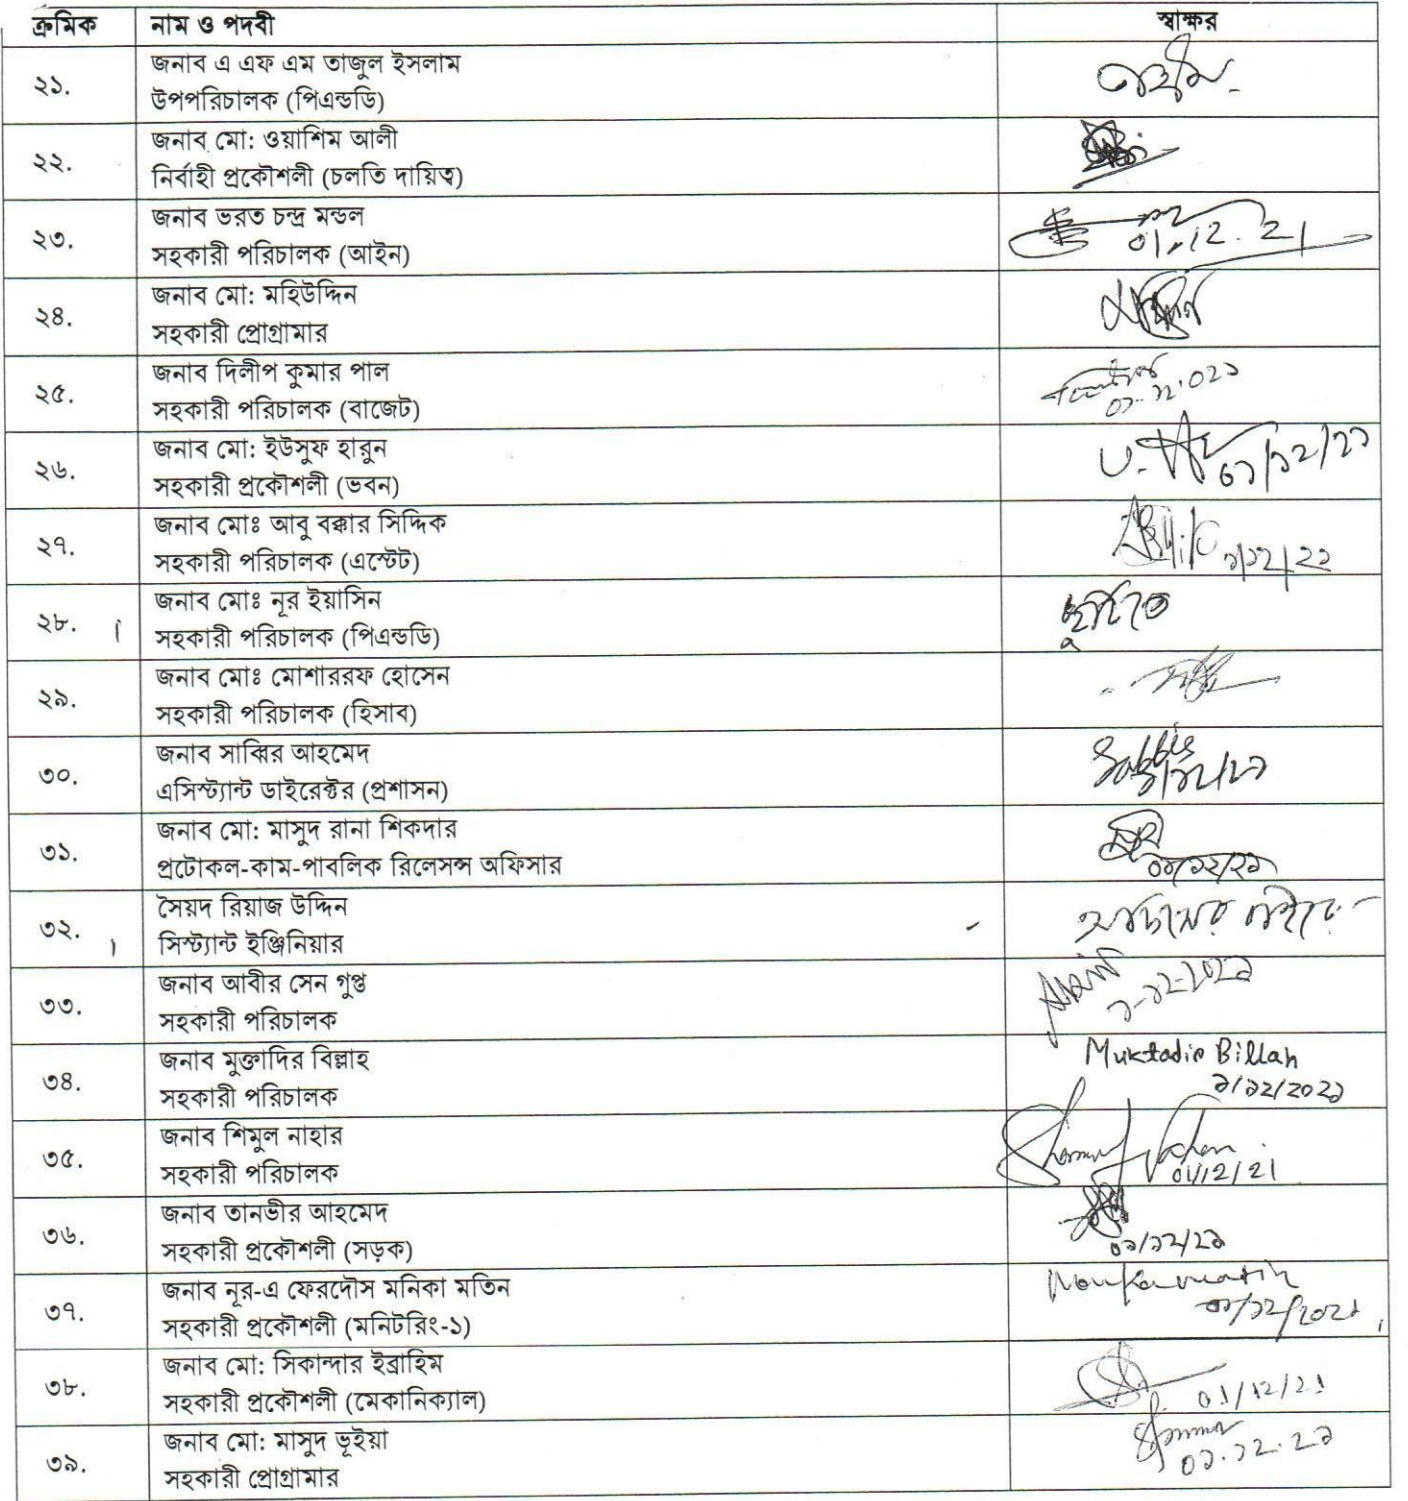 ক্রমিক নাম ও পদবী স্বাক্ষর
২১. জনাব এ এফ এম তাজুল ইসলাম
উপপরিচালক (পিএন্ডডি)
২২. জনাব মো: ওয়াশিম আলী
নির্বাহী প্রকৌশলী (চলতি দায়িত্ব)
২৩. জনাব ভরত চন্দ্র মন্ডল
সহকারী পরিচালক (আইন) 01.12.21
২৪. জনাব মো: মহিউদ্দিন
সহকারী প্রোগ্রামার
২৫. জনাব দিলীপ কুমার পাল
সহকারী পরিচালক (বাজেট)
২৬. জনাব মো: ইউসুফ হারুন
সহকারী প্রকৌশলী (ভবন) ০১/১২/২১
২৭. জনাব মোঃ আবু বক্কার সিদ্দিক
সহকারী পরিচালক (এস্টেট) ১/১২/২১
২৮. জনাব মোঃ নূর ইয়াসিন
সহকারী পরিচালক (পিএন্ডডি)
২৯. জনাব মোঃ মোশাররফ হোসেন
সহকারী পরিচালক (হিসাব)
৩০. জনাব সাব্বির আহমেদ
এসিস্ট্যান্ট ডাইরেক্টর (প্রশাসন)
৩১. জনাব মো: মাসুদ রানা শিকদার
প্রটোকল-কাম-পাবলিক রিলেসন্স অফিসার ০১/১২/২১
৩২. সৈয়দ রিয়াজ উদ্দিন
সিস্ট্যান্ট ইঞ্জিনিয়ার
৩৩. জনাব আবীর সেন গুপ্ত
সহকারী পরিচালক ১-১২-২০২১
৩৪. জনাব মুক্তাদির বিল্লাহ Muktadir Billah
সহকারী পরিচালক ১/১২/২০২১
৩৫. জনাব শিমুল নাহার
সহকারী পরিচালক 01/12/21
৩৬. জনাব তানভীর আহমেদ
সহকারী প্রকৌশলী (সড়ক) ০১/১২/২১
৩৭. জনাব নূর-এ ফেরদৌস মনিকা মতিন
সহকারী প্রকৌশলী (মনিটরিং-১) ০১/১২/২০২১
৩৮. জনাব মো: সিকান্দার ইব্রাহিম
সহকারী প্রকৌশলী (মেকানিক্যাল) 01/12/21
৩৯. জনাব মো: মাসুদ ভূইয়া
সহকারী প্রোগ্রামার ০১.১২.২১